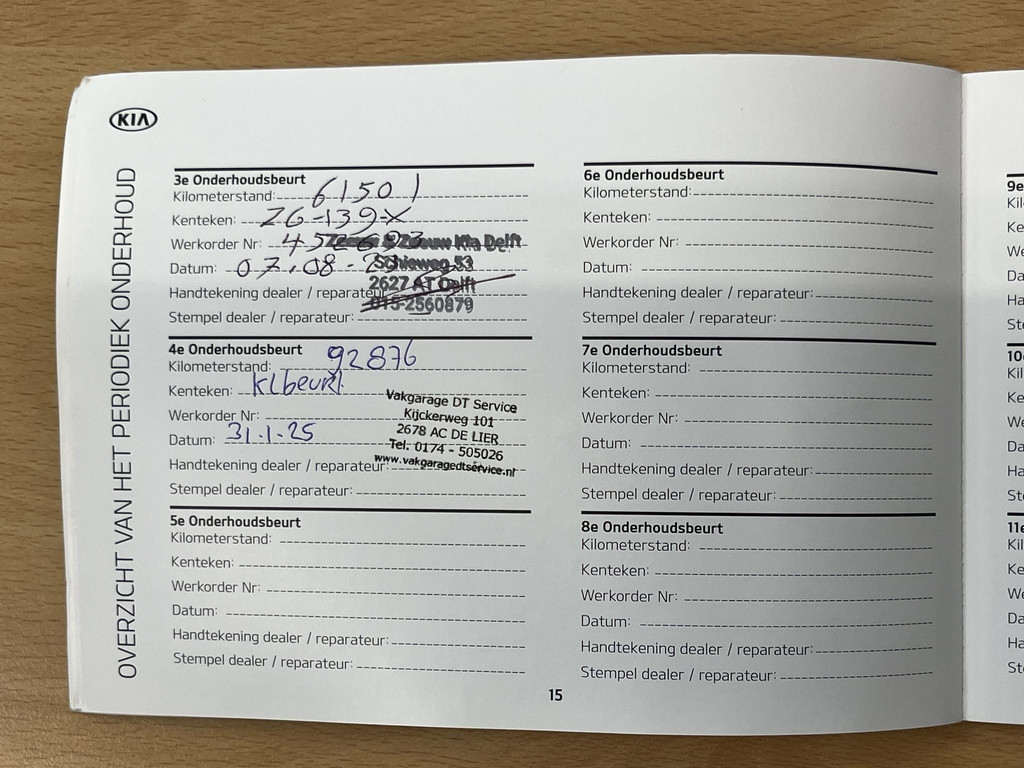 KIA
OVERZICHT VAN HET PERIODIEK ONDERHOUD
3e Onderhoudsbeurt
Kilometerstand: 61501
Kenteken: ZG-139-X
Werkorder Nr:
Datum: 07.08-
Handtekening dealer / reparateur
Stempel dealer / reparateur:
Zeeuw & Zeeuw Kia Delft
Schieweg 53
2627 AT Delft
015-2560879
4e Onderhoudsbeurt
Kilometerstand: 92876
Kenteken: klbeurt
Werkorder Nr:
Datum: 31.1.25
Handtekening dealer / reparateur:
Stempel dealer / reparateur:
Vakgarage DT Service
Kijckerweg 101
2678 AC DE LIER
Tel. 0174 - 505026
www.vakgaragedtservice.nl
5e Onderhoudsbeurt
Kilometerstand:
Kenteken:
Werkorder Nr:
Datum:
Handtekening dealer / reparateur:
Stempel dealer / reparateur:
6e Onderhoudsbeurt
Kilometerstand:
Kenteken:
Werkorder Nr:
Datum:
Handtekening dealer / reparateur:
Stempel dealer / reparateur:
7e Onderhoudsbeurt
Kilometerstand:
Kenteken:
Werkorder Nr:
Datum:
Handtekening dealer / reparateur:
Stempel dealer / reparateur:
8e Onderhoudsbeurt
Kilometerstand:
Kenteken:
Werkorder Nr:
Datum:
Handtekening dealer / reparateur:
Stempel dealer / reparateur:
15
9e
Kil
Ke
We
Da
Ha
Ste
10
Kil
Ke
We
Da
Ha
Ste
11e
Kil
Ke
We
Da
Ha
Ste